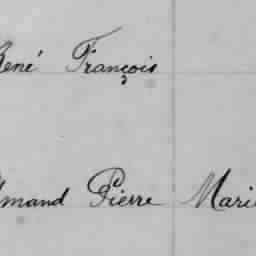 René François
Armand Pierre Marie